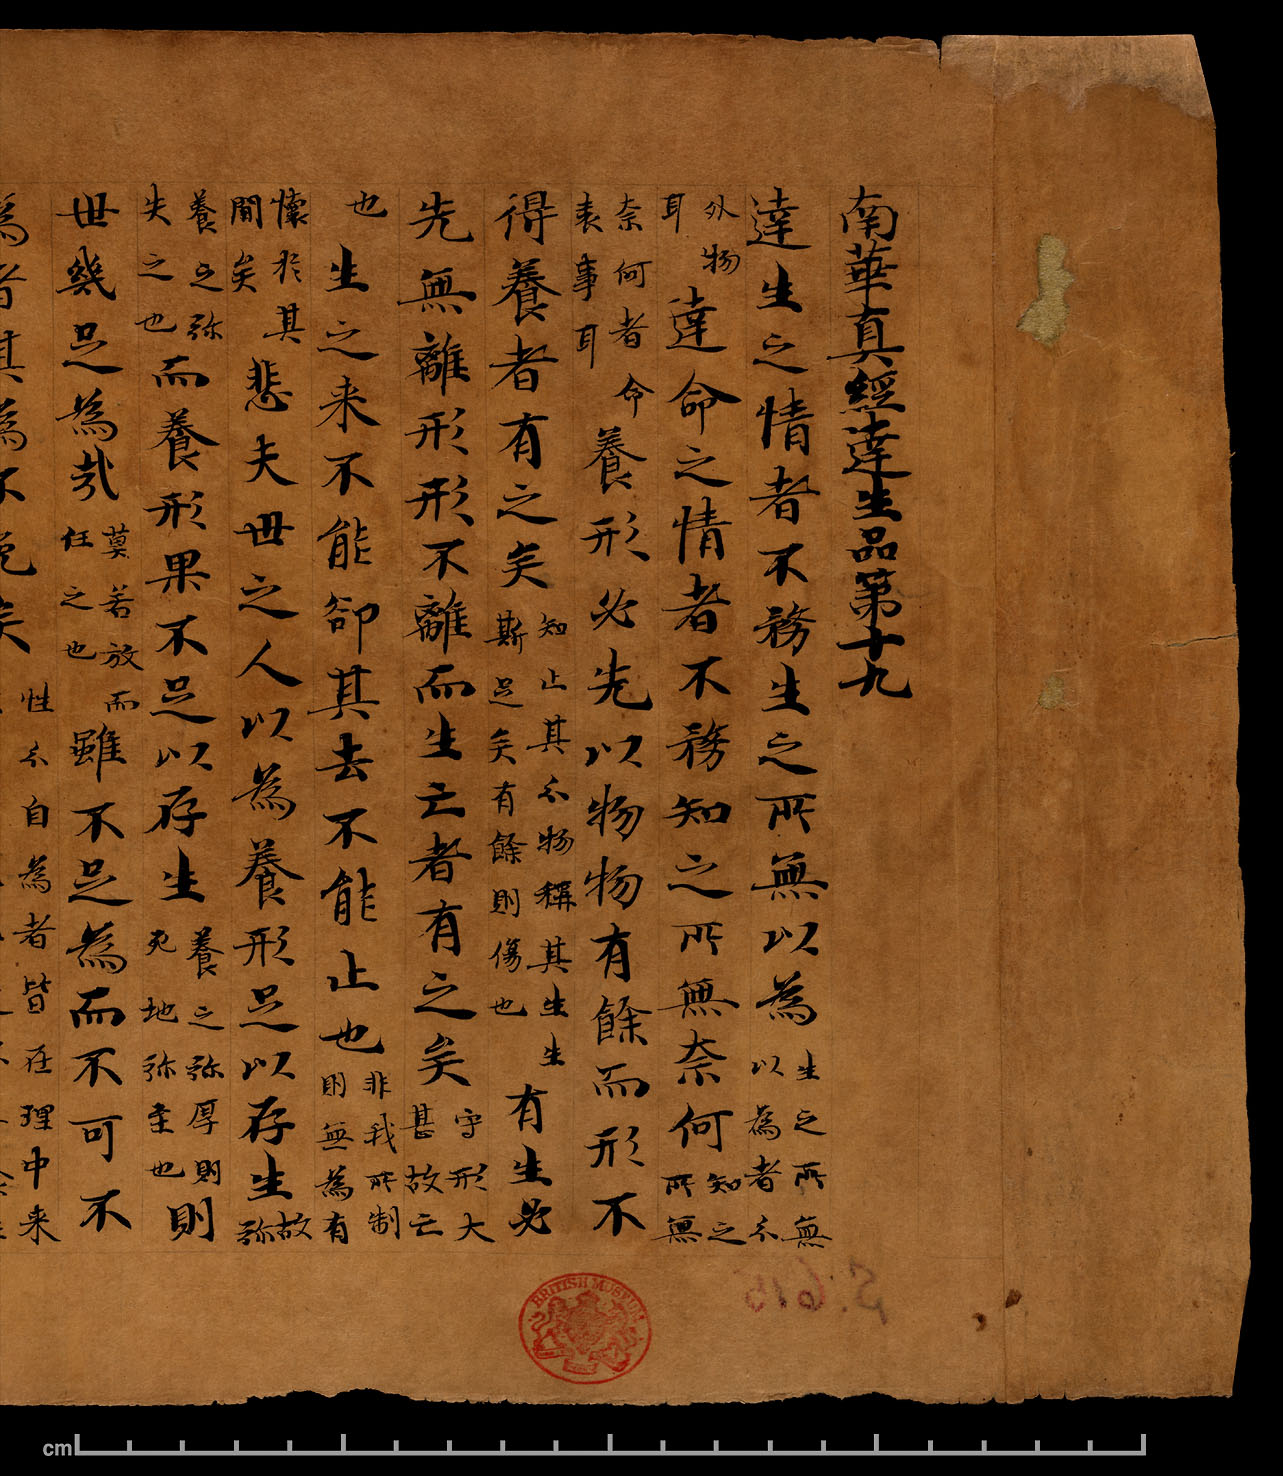 南華真經達生品第十九
達生之情者不務生之所無以為生之所無以為者分
外物耳達命之情者不務知之所無奈何知之所無
奈何者命表事耳養形必先以物物有餘而形不
得養者有之矣知止其分物稱其生生斯足矣有餘則傷也有生必
先無離形形不離而生亡者有之矣守形大甚故亡
也生之来不能卻其去不能止也非我所制則無為有
懷於其間矣悲夫世之人以為養形足以存生故弥
養之弥失之也而養形果不足以存生養之弥厚則死地弥至也則
世幾足為哉莫若放而任之也雖不足為而不可不
為者其為不免矣性分自為者皆在理中来
BRITISH MUSEUM
S.615
cm